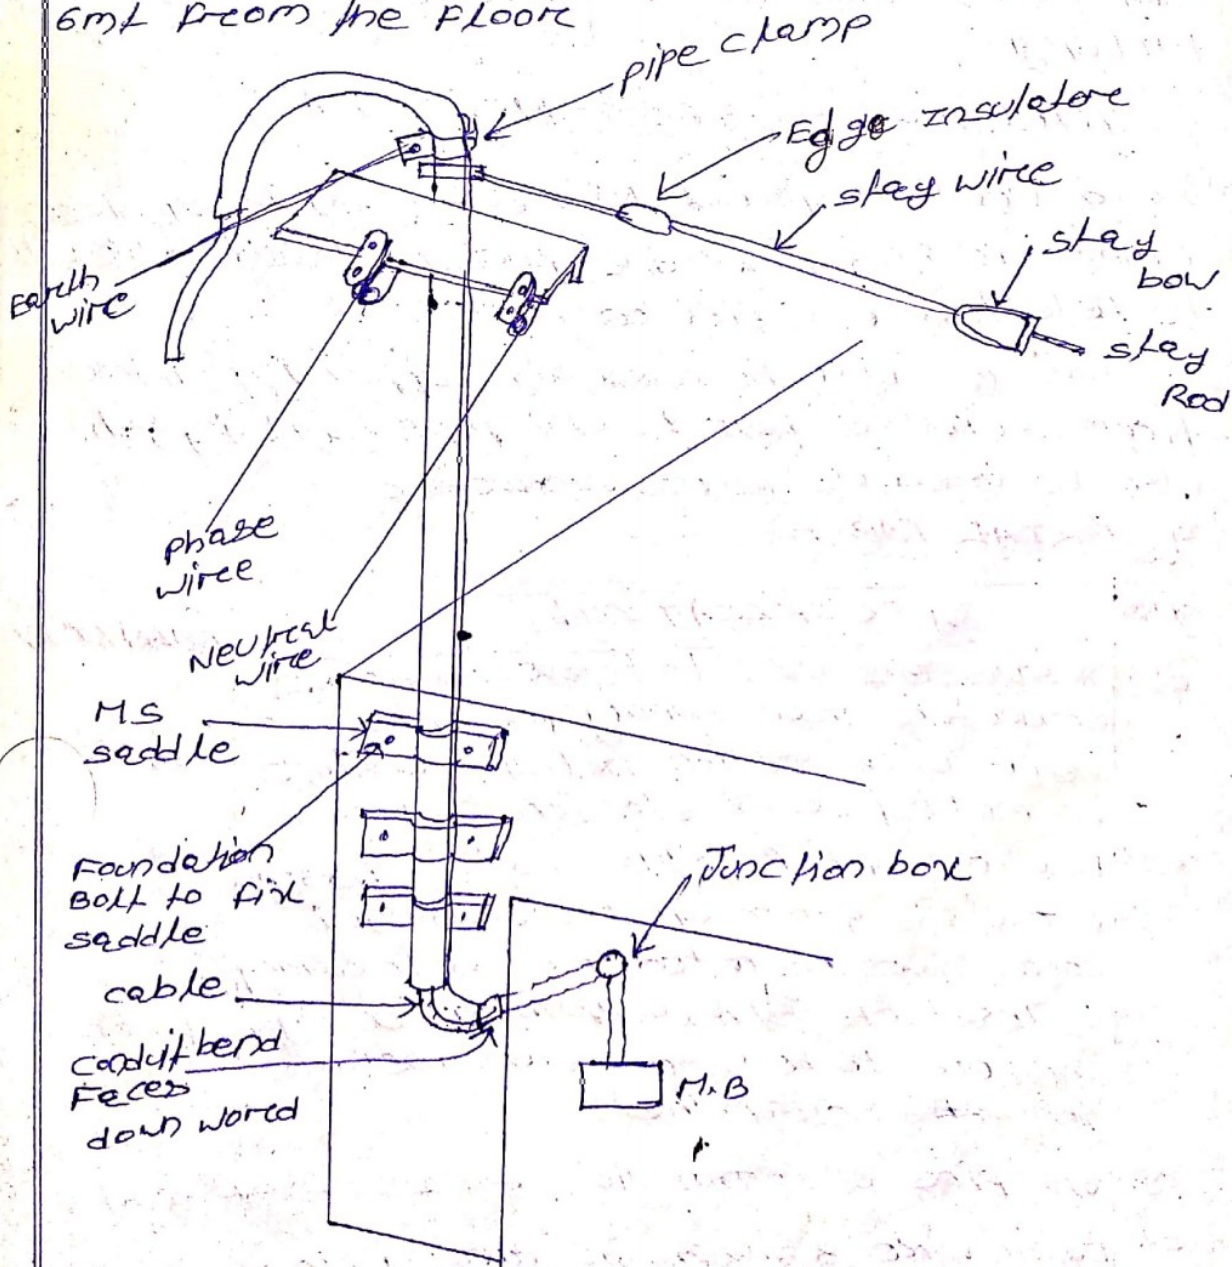 6mt from the Floor
pipe clamp
Edge Insulatore
stay wire
stay
bow
stay
Rod
Earth
wire
phase
wire
Neutral
wire
M.S
saddle
Foundation
Bolt to fix
saddle
Junction box
cable
conduit bend
Feces
down wored
M.B